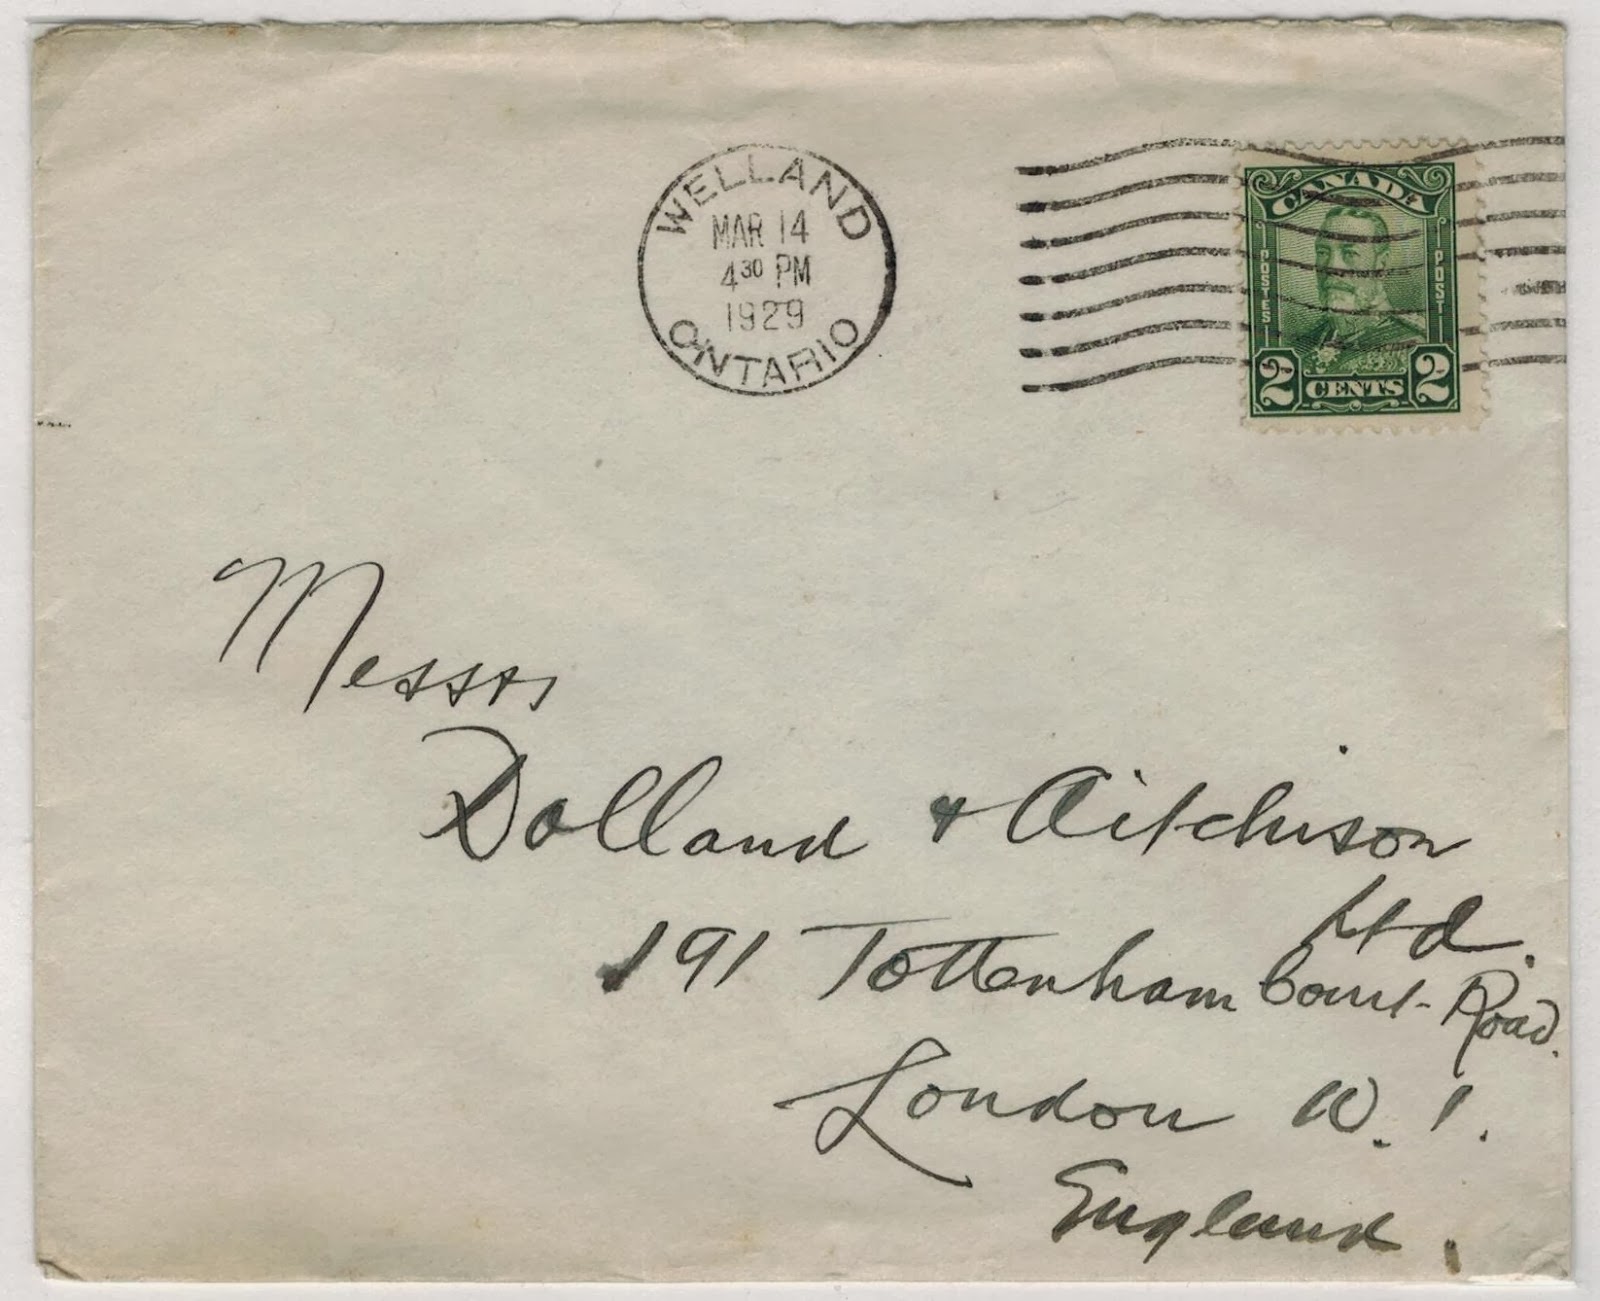 WELLAND
MAR 14
4 30 PM
1929
ONTARIO
CANADA
POSTES
POST
2 CENTS 2
Messrs
Dolland & Aitchison
Ltd.
191 Tottenham Court Road.
London W. 1.
England.